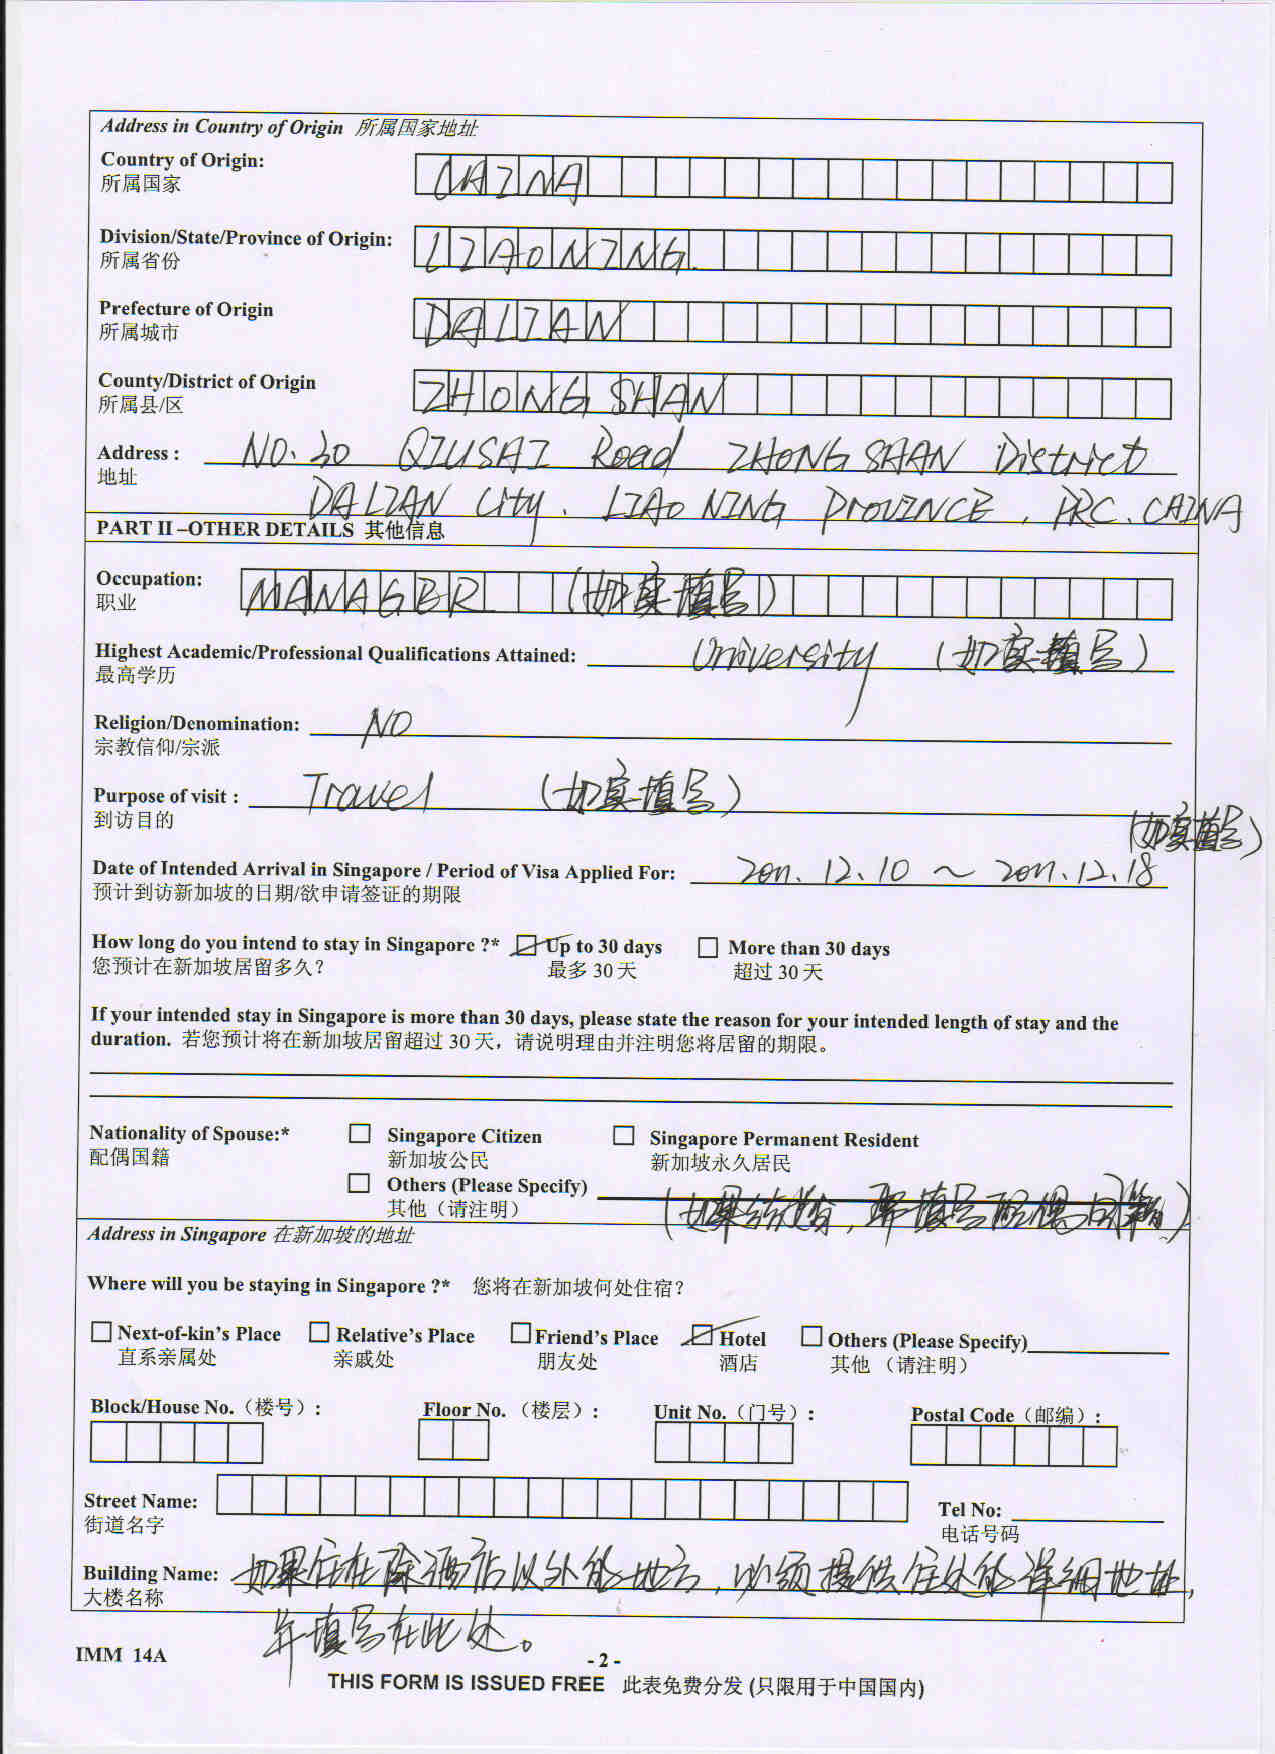 Address in Country of Origin 所属国家地址
Country of Origin: CHINA
所属国家
Division/State/Province of Origin: LIAONING
所属省份
Prefecture of Origin DALIAN
所属城市
County/District of Origin ZHONG SHAN
所属县/区
Address : NO. 30 QIUSAI Road ZHONG SHAN District
地址
DALIAN City. LIAO NING PROVINCE, PRC. CHINA
PART II –OTHER DETAILS 其他信息
Occupation: MANAGER (如实填写)
职业
Highest Academic/Professional Qualifications Attained: University (如实填写)
最高学历
Religion/Denomination: NO
宗教信仰/宗派
Purpose of visit : Travel (如实填写)
到访目的
(如实填写)
Date of Intended Arrival in Singapore / Period of Visa Applied For: 2011. 12. 10 ～ 2011. 12. 18
预计到访新加坡的日期/欲申请签证的期限
How long do you intend to stay in Singapore ?* Up to 30 days More than 30 days
您预计在新加坡居留多久? 最多 30 天 超过 30 天
If your intended stay in Singapore is more than 30 days, please state the reason for your intended length of stay and the
duration. 若您预计将在新加坡居留超过 30 天，请说明理由并注明您将居留的期限。
Nationality of Spouse:* Singapore Citizen Singapore Permanent Resident
配偶国籍 新加坡公民 新加坡永久居民
Others (Please Specify)
其他（请注明） (如果结婚, 填写配偶国籍)
Address in Singapore 在新加坡的地址
Where will you be staying in Singapore ?* 您将在新加坡何处住宿?
Next-of-kin's Place Relative's Place Friend's Place Hotel Others (Please Specify)
直系亲属处 亲戚处 朋友处 酒店 其他 （请注明）
Block/House No.（楼号）: Floor No. （楼层）: Unit No.（门号）: Postal Code（邮编）:
Street Name: Tel No:
街道名字 电话号码
Building Name: 如果住在除酒店以外的地方, 必须提供住处的详细地址,
大楼名称
并填写在此处。
IMM 14A - 2 -
THIS FORM IS ISSUED FREE 此表免费分发 (只限用于中国国内)